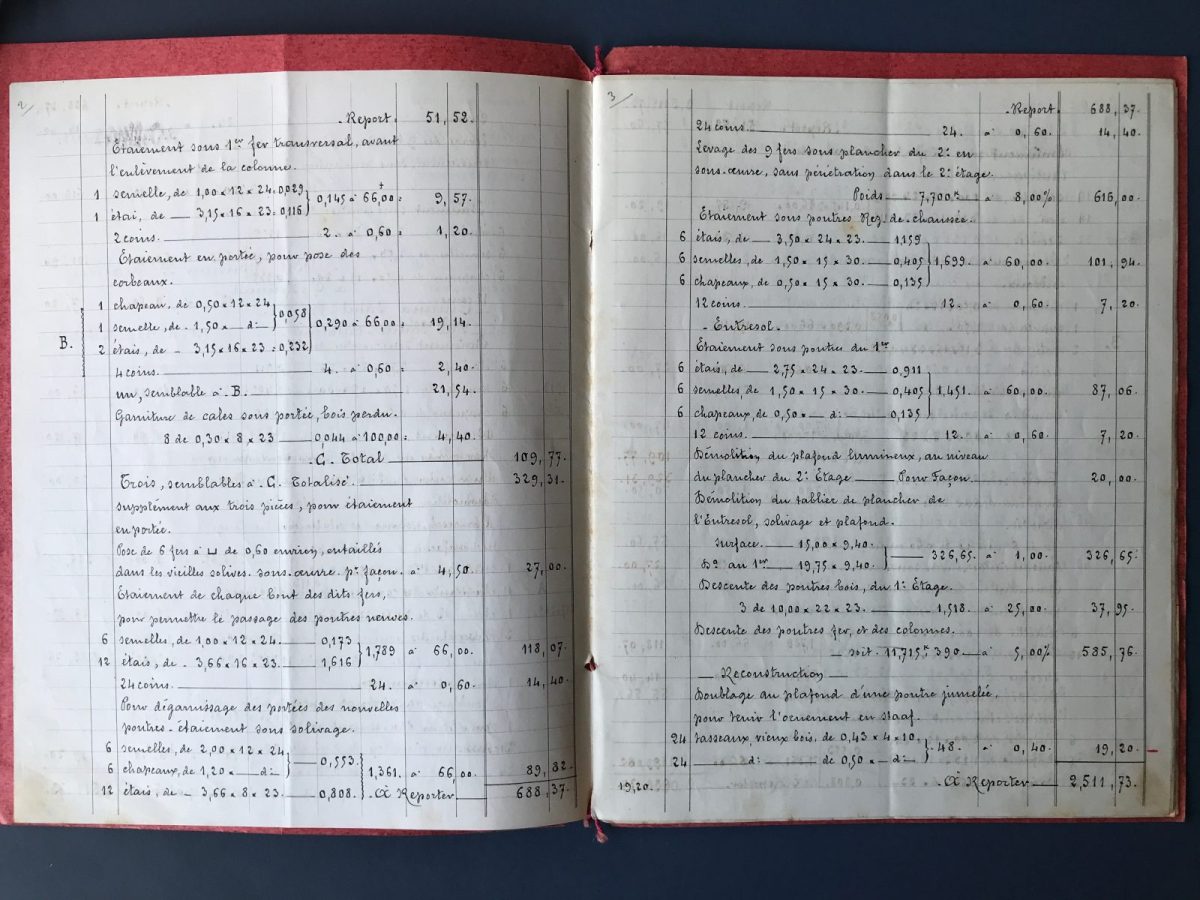 2/
Report. 51, 52.
Étaiement sous 1er fer transversal, avant
l'enlèvement de la colonne.
1 semelle, de 1,00 × 12 × 24 = 0,029
0,145 à 66,00 = 9, 57.
1 étai, de — 3,15 × 16 × 23 = 0,116
2 coins. — 2. à 0,60 = 1, 20.
Étaiement en portée, pour pose des
corbeaux.
1 chapeau, de 0,50 × 12 × 24
0,058
1 semelle, de - 1,50 × — d: —
0,290 à 66,00 = 19, 14.
B.
2 étais, de — 3,15 × 16 × 23 = 0,232
4 coins. — 4. à 0,60 = 2, 40.
un, semblable à B. — 21, 54.
Garniture de cales sous portée, bois perdu.
8 de 0,30 × 8 × 23 — 0,044 à 100,00 = 4, 40.
C. Total — 109, 77.
Trois, semblables à C. Totalisé. — 329, 31.
supplément aux trois pièces, pour étaiement
en portée.
Pose de 6 fers à ⊔ de 0,60 environ, entaillés
dans les vieilles solives. sous-œuvre. pr façon. à 4, 50. 27, 00.
Étaiement de chaque bout des dits fers,
pour permettre le passage des poutres neuves.
6 semelles, de 1,00 × 12 × 24. — 0,173
1,789 à 66, 00. 118, 07.
12 étais, de - 3,66 × 16 × 23. — 1,616
24 coins. — 24. à 0, 60. 14, 40.
Pour dégarnissage des portées des nouvelles
poutres - étaiement sous solivage.
6 semelles, de 2,00 × 12 × 24
0,553.
6 chapeaux, de 1,20 × — d: —
1,361. à 66, 00. 89, 82.
12 étais, de - 3,66 × 8 × 23. — 0,808. À Reporter — 688, 37.
3/
Report. 688, 37.
24 coins. — 24. à 0, 60. 14, 40.
Levage des 9 fers sous plancher du 2e en
sous-œuvre, sans pénétration dans le 2e étage.
Poids — 7,700k à 8,00% 616, 00.
Étaiement sous poutres Rez-de-chaussée.
6 étais, de — 3,50 × 24 × 23. — 1,159
6 semelles, de 1,50 × 15 × 30. — 0,405 1,699. à 60, 00. 101, 94.
6 chapeaux, de 0,50 × 15 × 30. — 0,135
12 coins. — 12. à 0, 60. 7, 20.
- Entresol. -
Étaiement sous poutres du 1er
6 étais, de — 2,75 × 24 × 23. — 0,911
6 semelles, de 1,50 × 15 × 30. — 0,405 1,451. à 60, 00. 87, 06.
6 chapeaux, de 0,50 × — d: — 0,135
12 coins. — 12. à 0, 60. 7, 20.
Démolition du plafond lumineux, au niveau
du plancher du 2e Étage — Pour Façon. 20, 00.
Démolition du tablier de plancher de
l'Entresol, solivage et plafond.
surface. — 15,00 × 9,40.
326,65. à 1, 00. 326, 65.
Do au 1er — 19,75 × 9,40.
Descente des poutres bois, du 1er Étage.
3 de 10,00 × 22 × 23. — 1,518. à 25, 00. 37, 95.
Descente des poutres fer, et des colonnes.
— soit. 11,715k, 390 — à 5, 00% 585, 76.
— Reconstruction —
Doublage au plafond d'une poutre jumelée,
pour tenir l'ornement en staff.
24 tasseaux, vieux bois, de 0,43 × 4 × 10.
48. à 0, 40. 19, 20.
24 — d: — de 0,50 × — d: —
19,20. À Reporter — 2,511, 73.